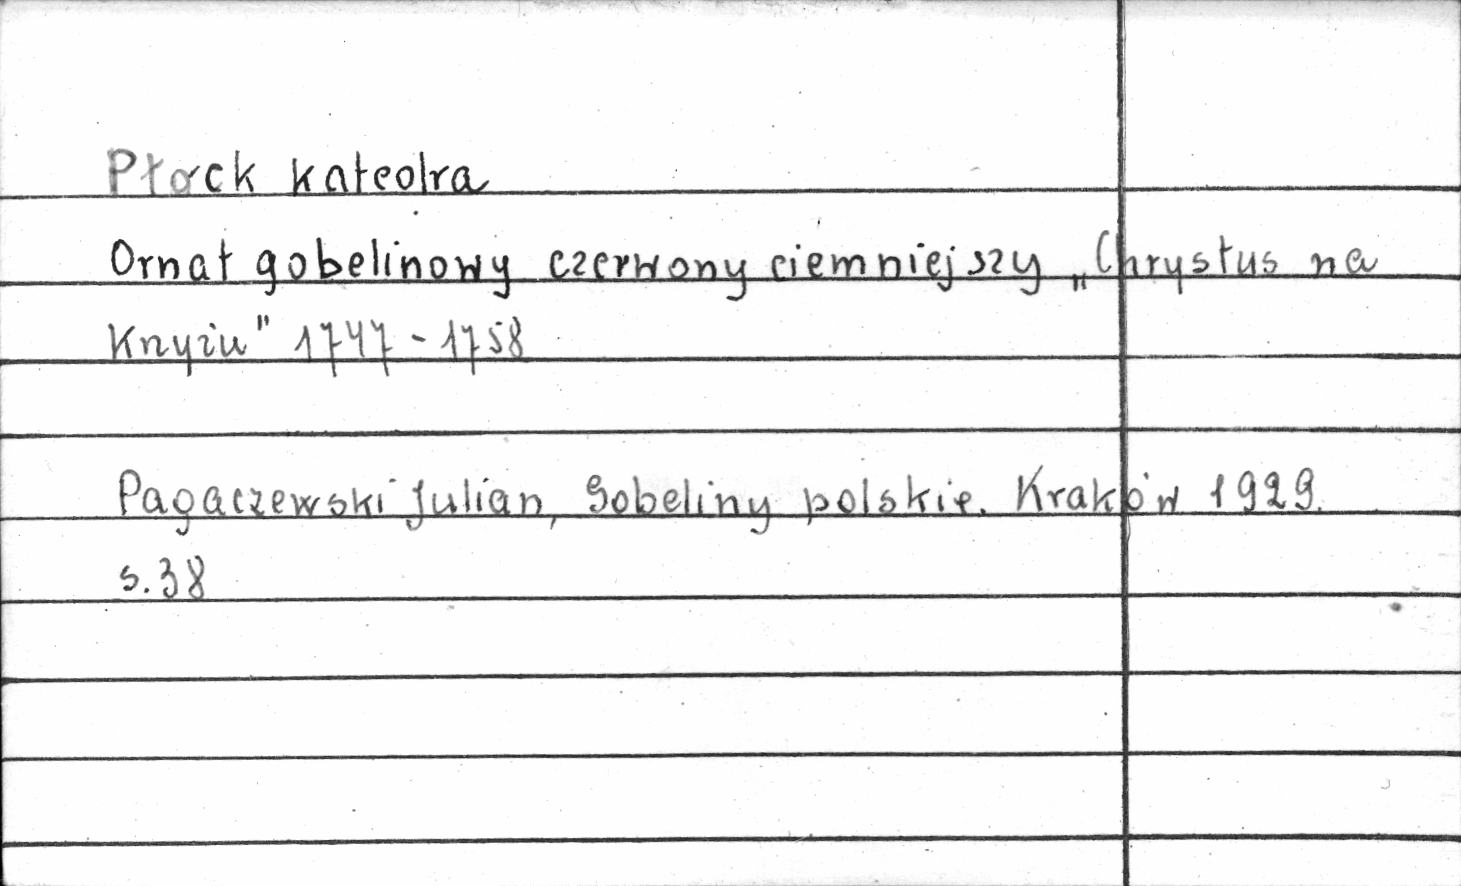 Płock katedra
Ornat gobelinowy czerwony ciemniejszy „Chrystus na
Krzyżu" 1747 - 1758
Pagaczewski Julian, Gobeliny polskie. Kraków 1929.
s. 38